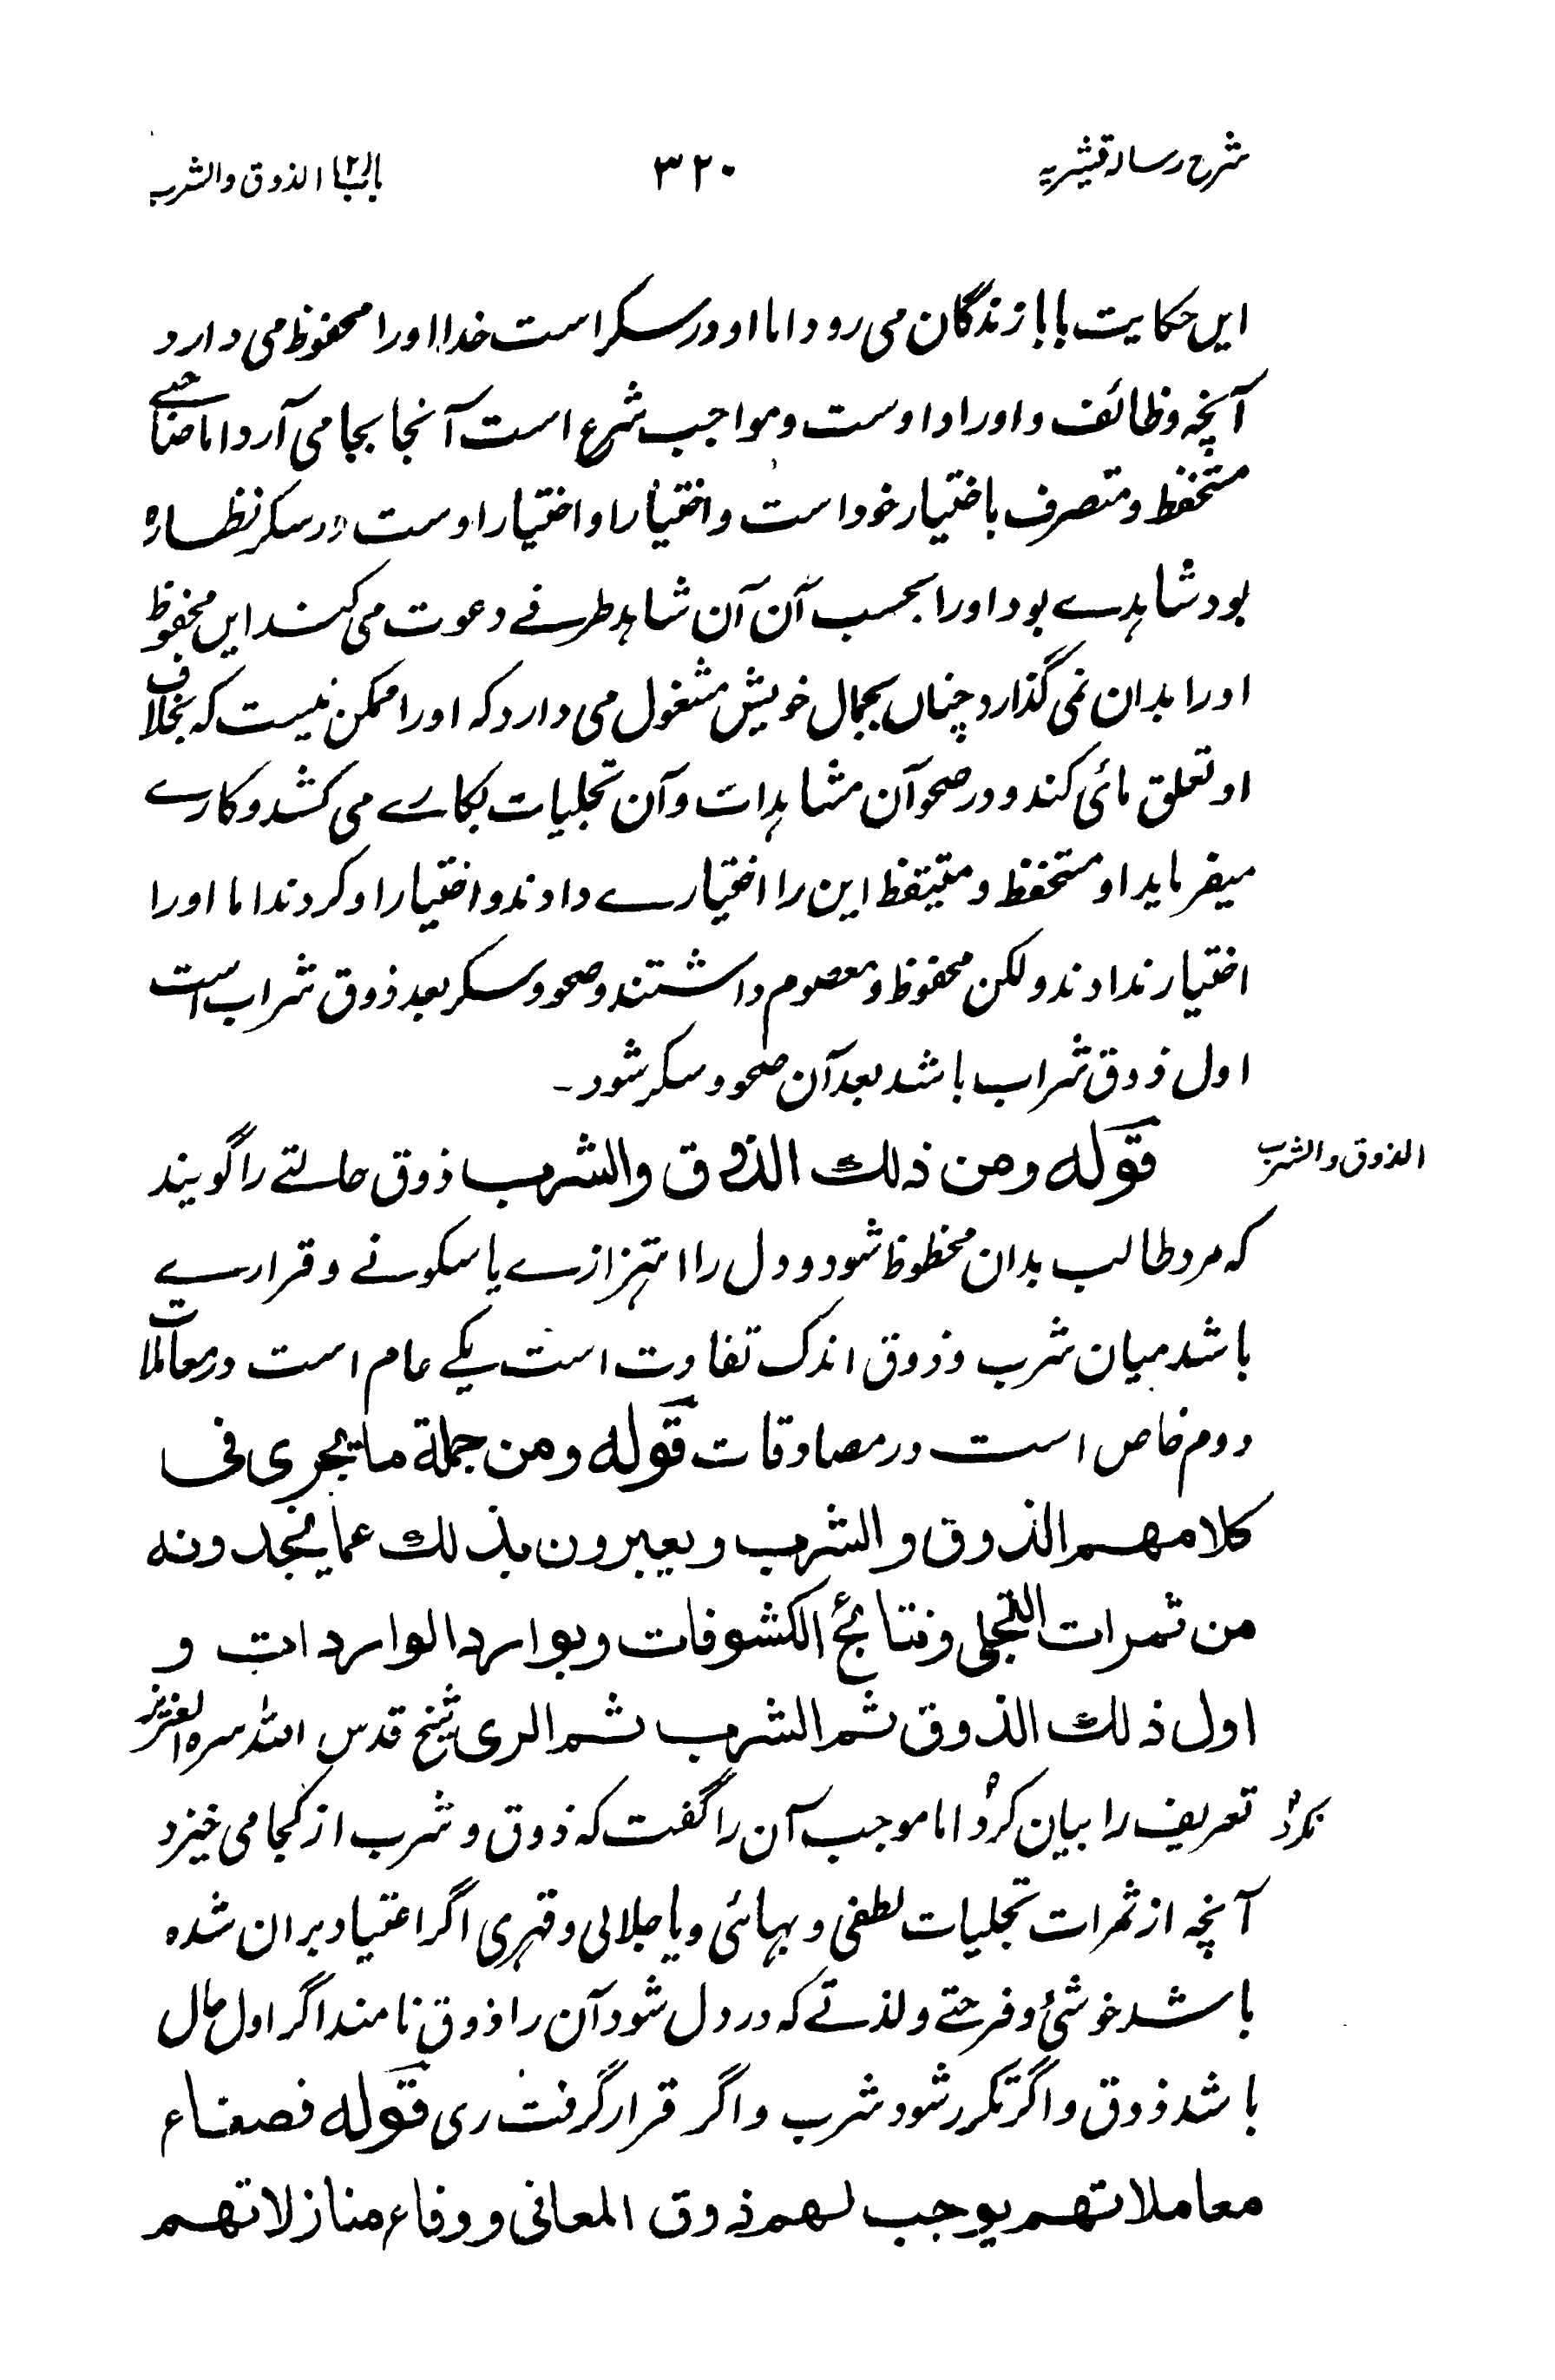 شرح رسالہ قشیریہ
۳۲۰
باب (۲) الذوق والشرب
ایں حکایت با بازندگان می رود اما او در سکر است خدا اورا محفوظ می دارد
آنچہ وظائف و اوراد اوست و مواجب شرع است آنجا بجا می آرد اما صاحی
متحفظ و متصرف باختیار خود است و اختیار او اختیار اوست در سکر نظارہ
بود شاہدے بود اورا بحسب آن آن شاہد طرفے دعوت می کند ایں محفوظ
اورا بدان نمی گذارد چناں بجمال خویش مشغول می دارد کہ اورا ممکن نیست کہ بخلاف
او تعلق مائی کند و در صحو آن مشاہدات و آن تجلیات بکارے می کشد و کارے
میفرماید او متحفظ و متیقظ این را اختیارے دادند و اختیار او کردند اما اورا
اختیار ندادند ولکن محفوظ و معصوم داشتند و صحو و سکر بعد ذوق شراب است
اول ذوق شراب باشد بعد آن صحو و سکر شود۔
الذوق والشرب
قوله ومن ذلك الذوق والشرب ذوق حالتے را گویند
کہ مرد طالب بدان محظوظ شود و دل را اہتزازے یا سکونے و قرارے
باشد میان شرب و ذوق اندک تفاوت است یکے عام است در معاملات
دوم خاص است در مصادقات قوله ومن جملة ما يجرى فى
كلامهم الذوق والشرب ويعبرون بذلك عما يجدونه
من ثمرات التجلى ونتائج الكشوفات وبوارد الواردات و
اول ذلك الذوق ثم الشرب ثم الرى شیخ قدس اللہ سرہ العزیز
تعریف را بیان کرد اما موجب آن را گفت کہ ذوق و شرب از کجا می خیزد
نکرد
آنچہ از ثمرات تجلیات لطفی و بہائی و یا جلالی و قہری اگر اعتیاد بران شدہ
باشد خوشئ و فرحتے و لذتے کہ در دل شود آن را ذوق نامند اگر اول حال
باشد ذوق و اگر تکرر شود شرب و اگر قرار گرفت ری قوله فصفاء
معاملاتهم يوجب لهم ذوق المعانى ووفاء منازلاتهم